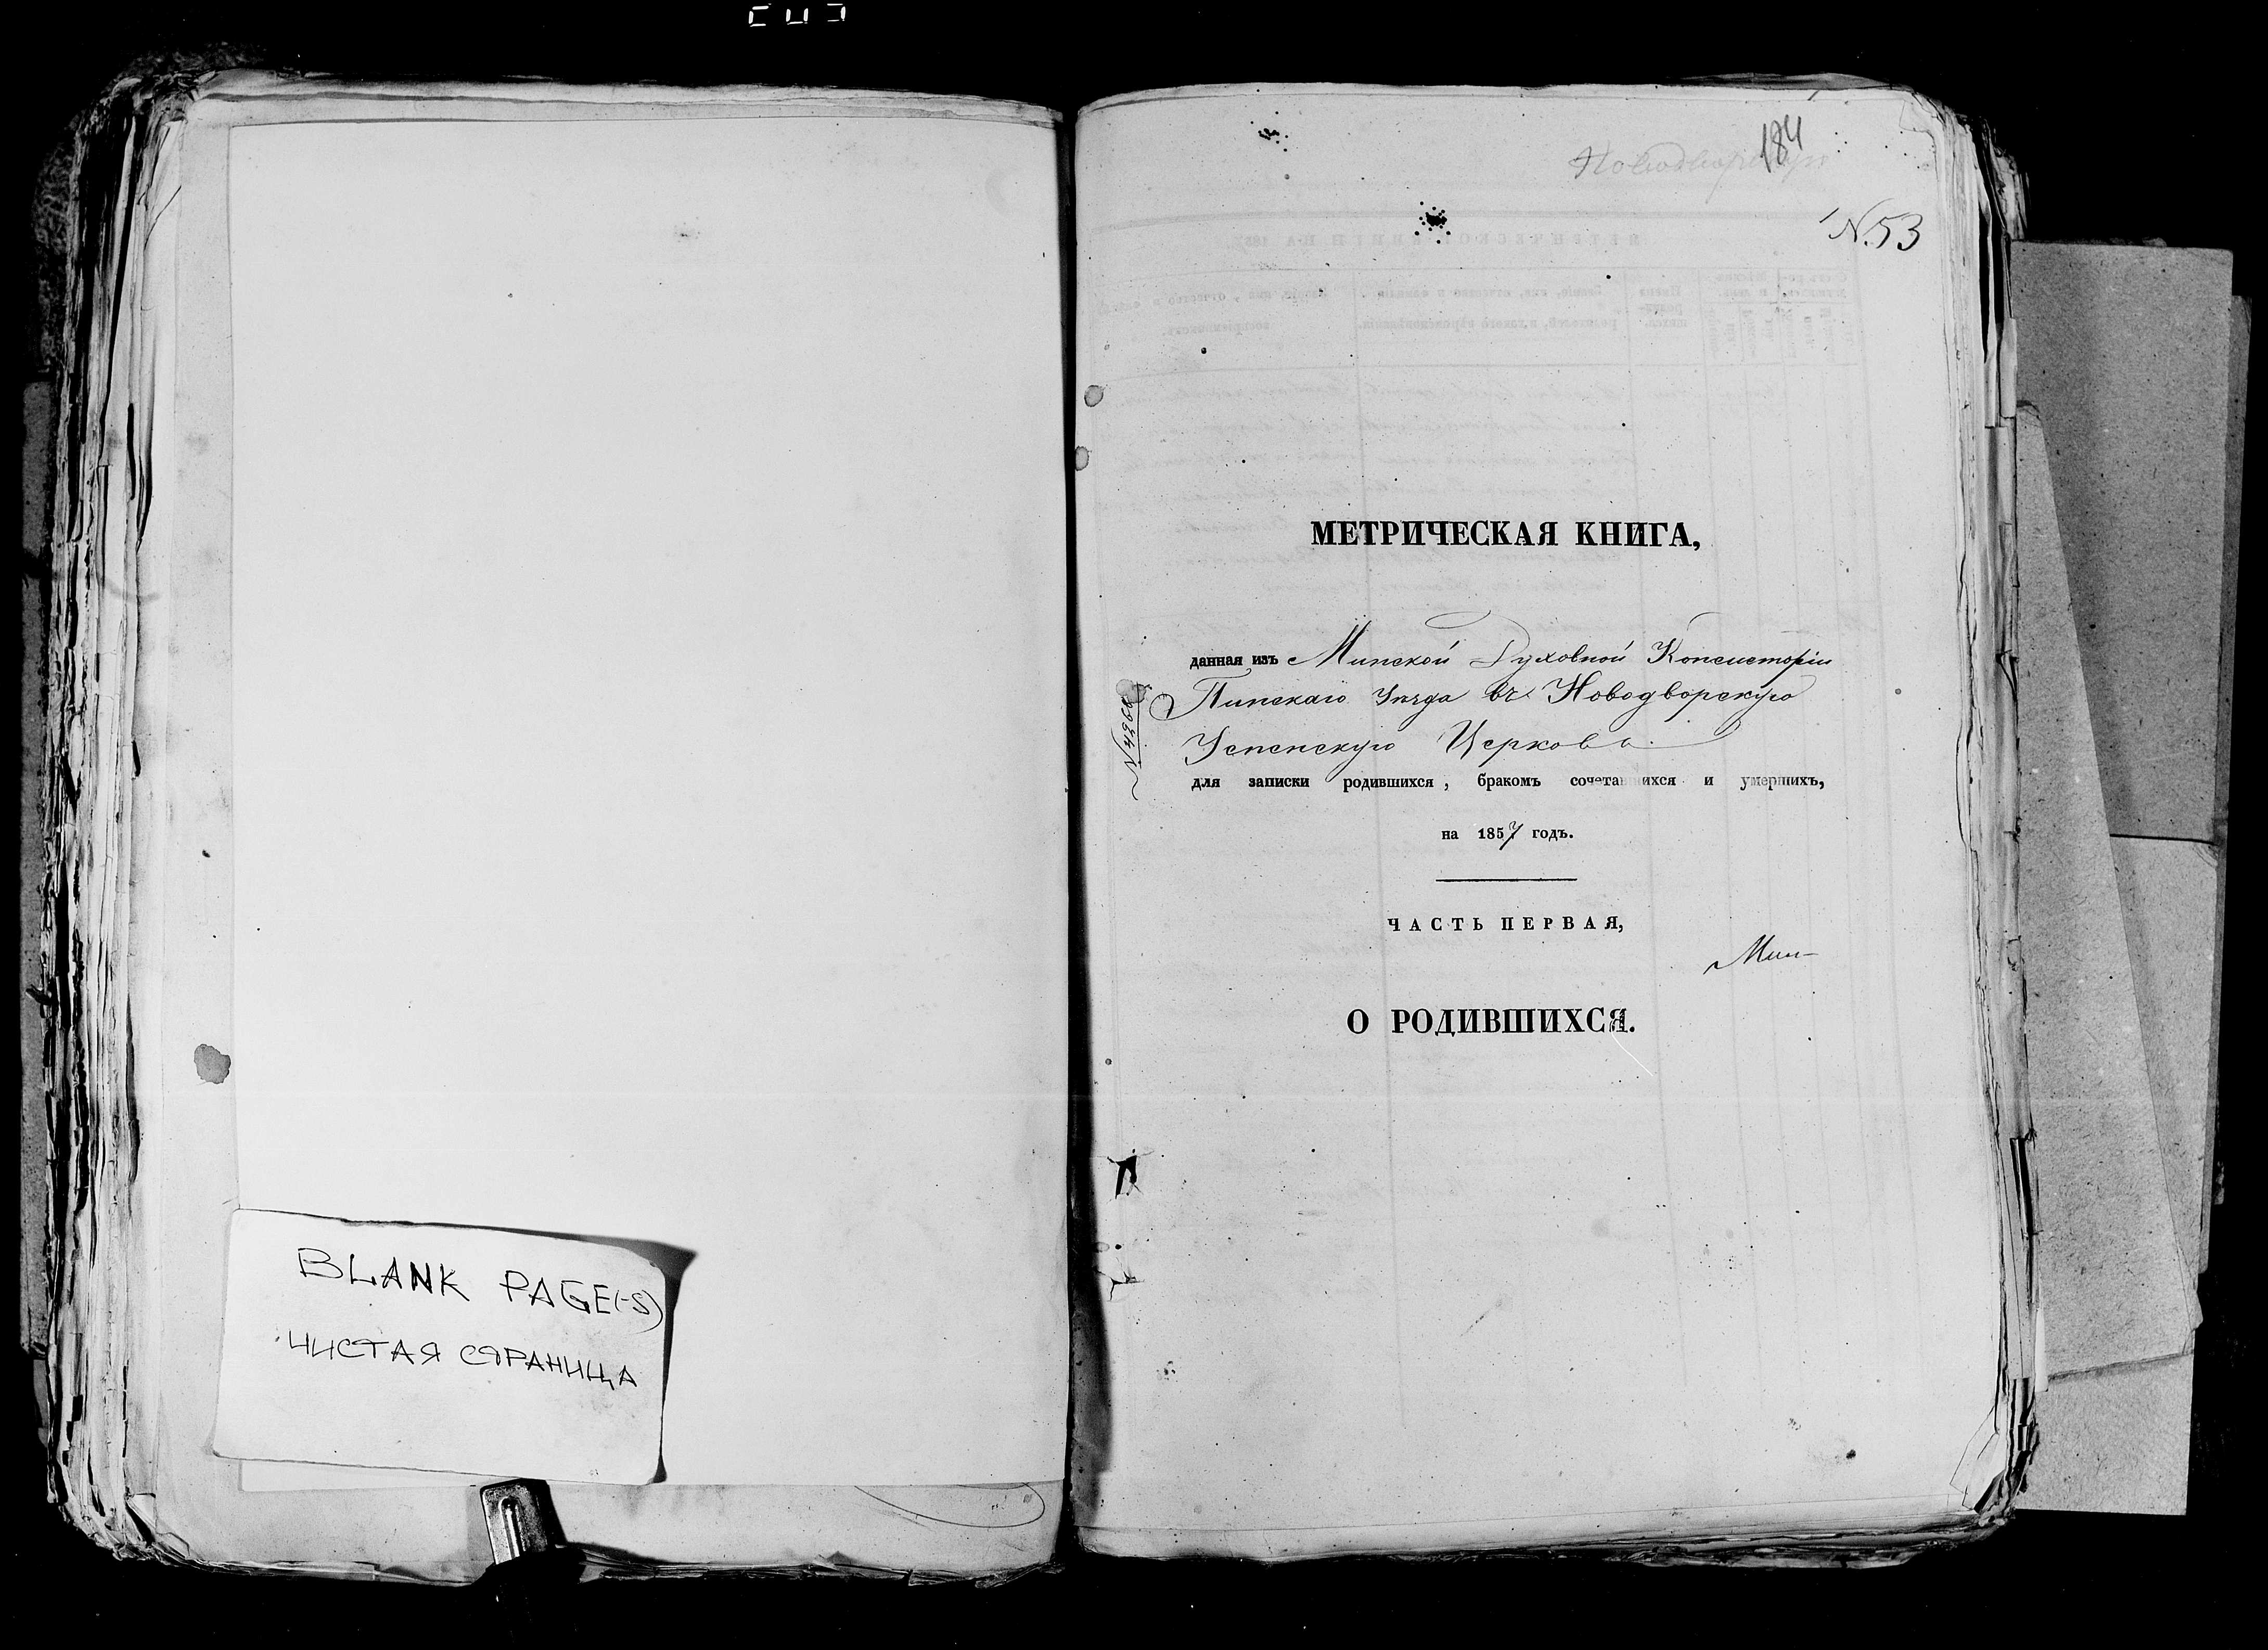 BLANK PAGE(-S)
ЧИСТАЯ СТРАНИЦА
184
Новодворскую
N. 53
МЕТРИЧЕСКАЯ КНИГА,
данная изъ Минской Духовной Консисторіи
Пинскаго Уѣзда въ Новодворскую
Успенскую Церковь
для записки родившихся, бракомъ сочетавшихся и умершихъ,
на 1857 годъ.
ЧАСТЬ ПЕРВАЯ,
Мин-
О РОДИВШИХСЯ.